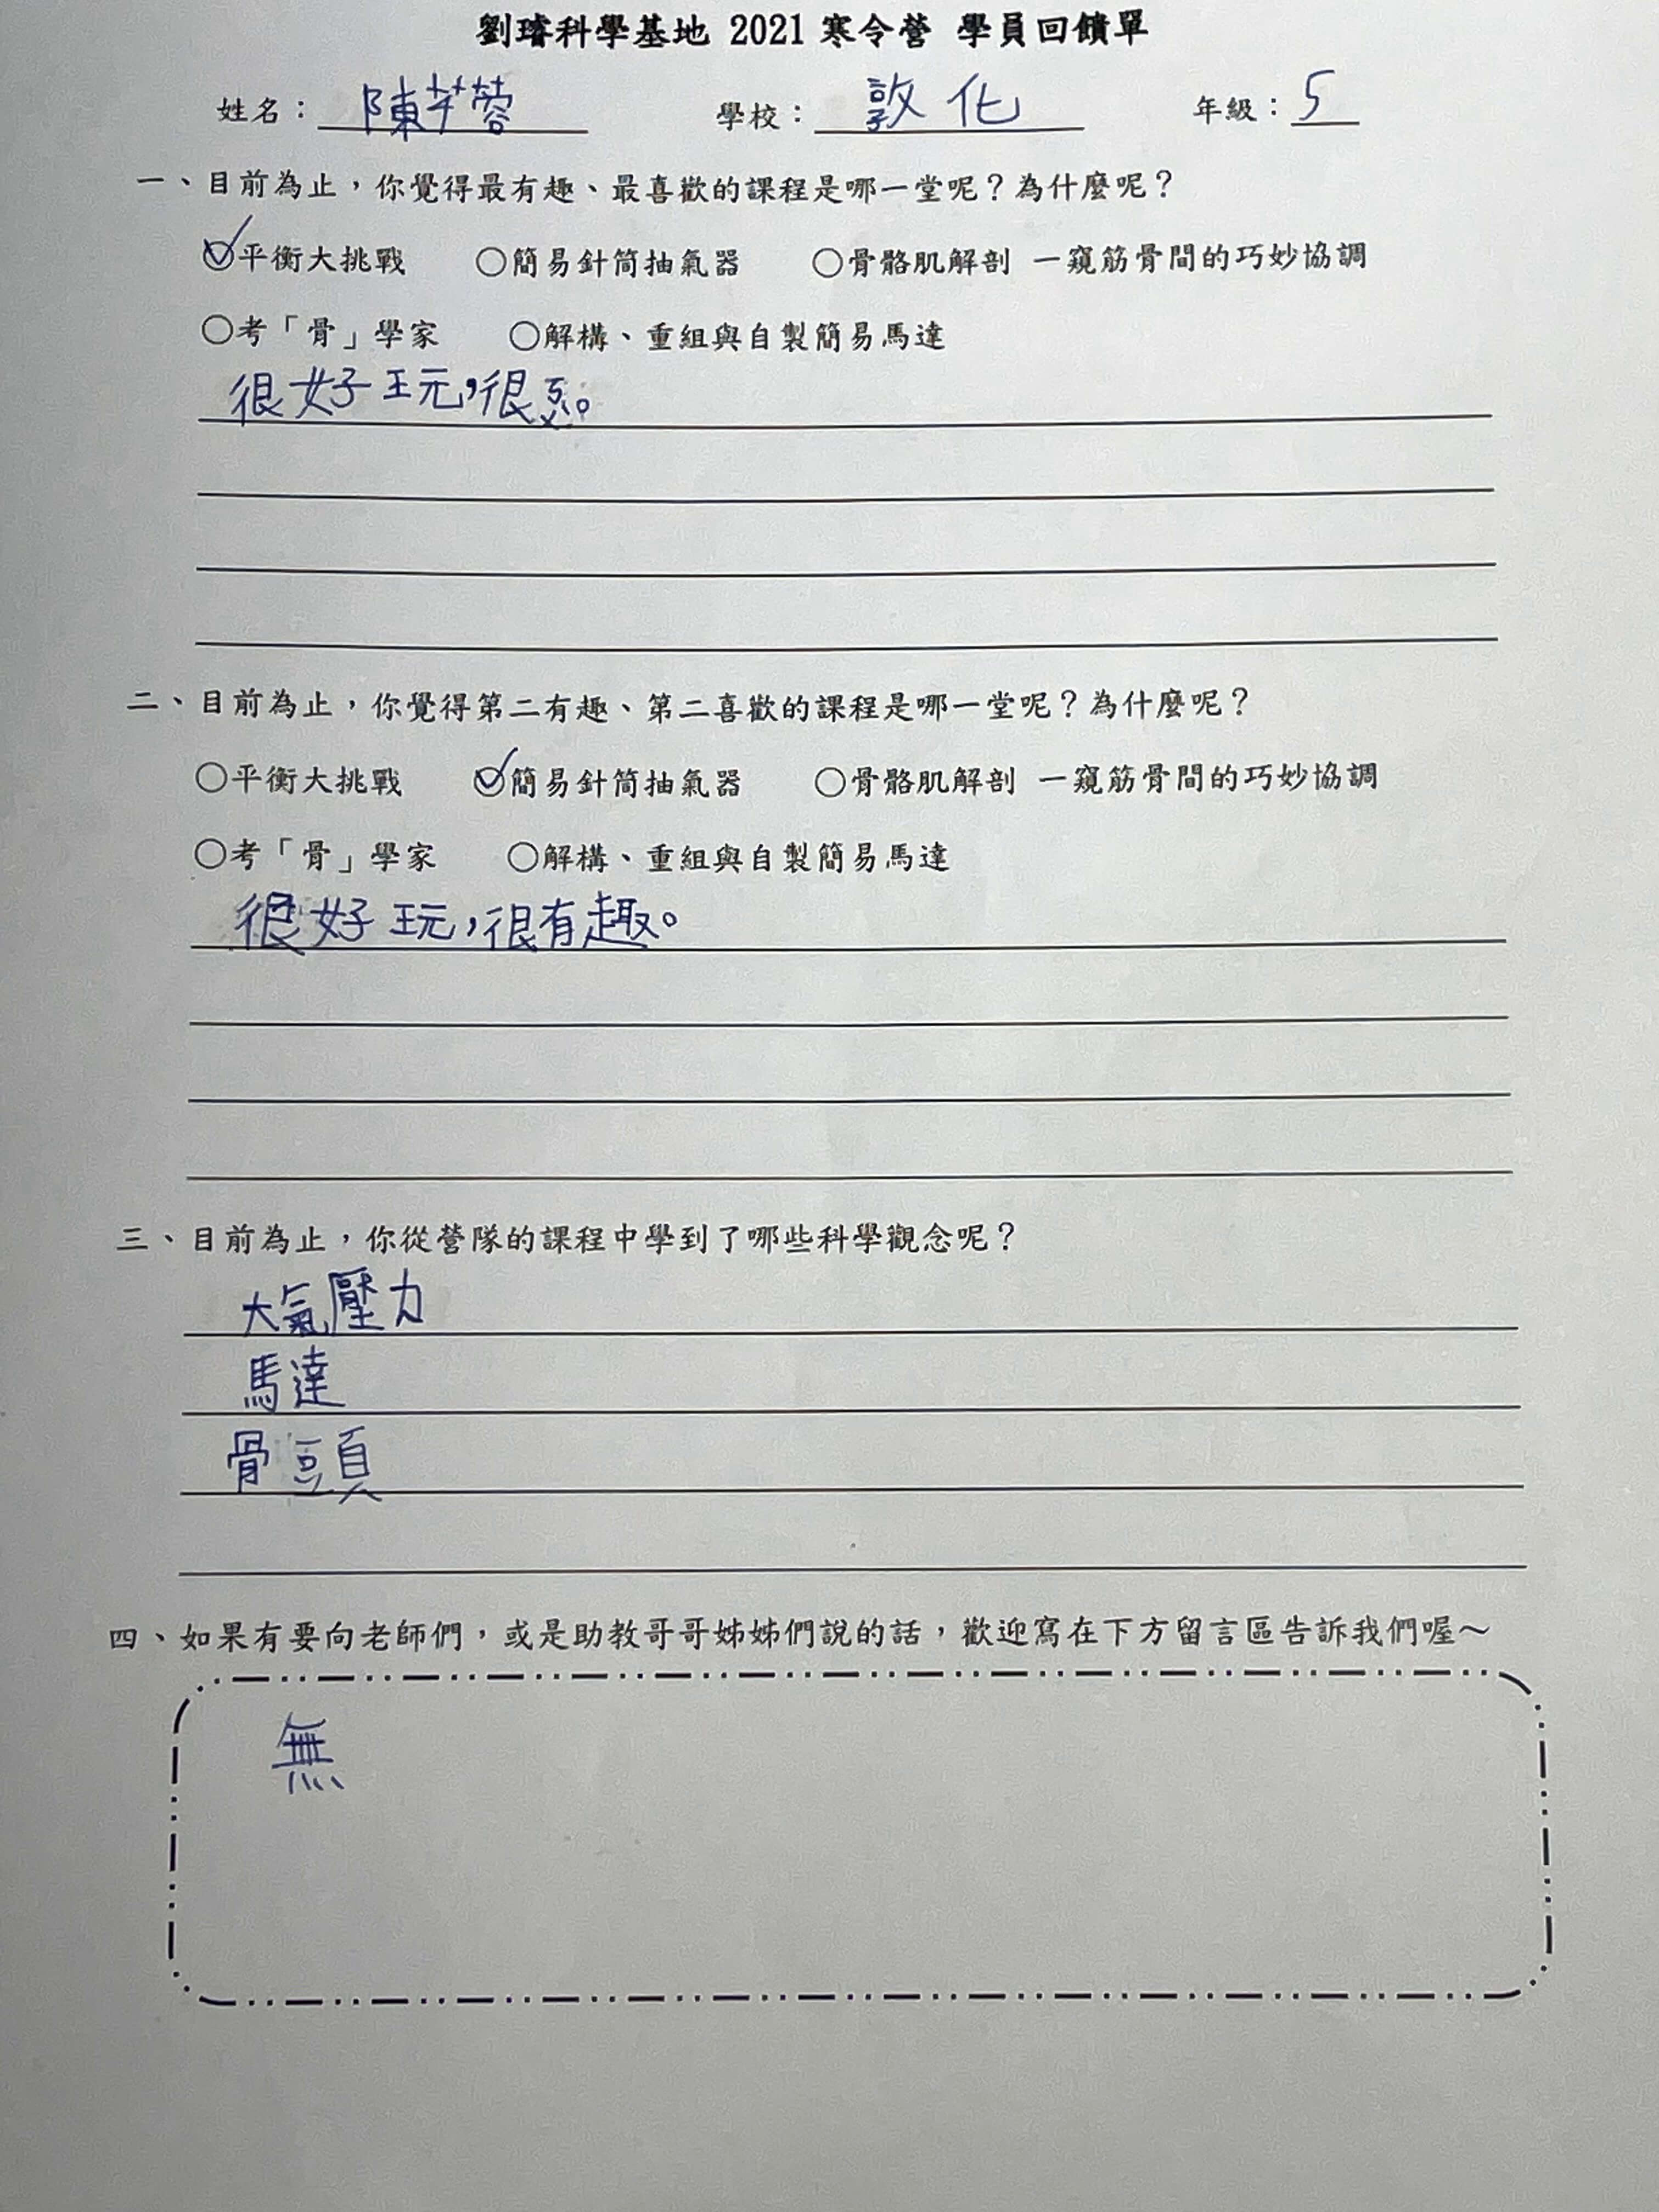 劉璿科學基地 2021 寒令營 學員回饋單
姓名：陳芊蓉 學校：敦化 年級：5
一、目前為止，你覺得最有趣、最喜歡的課程是哪一堂呢？為什麼呢？
○平衡大挑戰 ○簡易針筒抽氣器 ○骨骼肌解剖 一窺筋骨間的巧妙協調
○考「骨」學家 ○解構、重組與自製簡易馬達
很好玩，很。
二、目前為止，你覺得第二有趣、第二喜歡的課程是哪一堂呢？為什麼呢？
○平衡大挑戰 ○簡易針筒抽氣器 ○骨骼肌解剖 一窺筋骨間的巧妙協調
○考「骨」學家 ○解構、重組與自製簡易馬達
很好玩，很有趣。
三、目前為止，你從營隊的課程中學到了哪些科學觀念呢？
大氣壓力
馬達
骨頭
四、如果有要向老師們，或是助教哥哥姊姊們說的話，歡迎寫在下方留言區告訴我們喔～
無